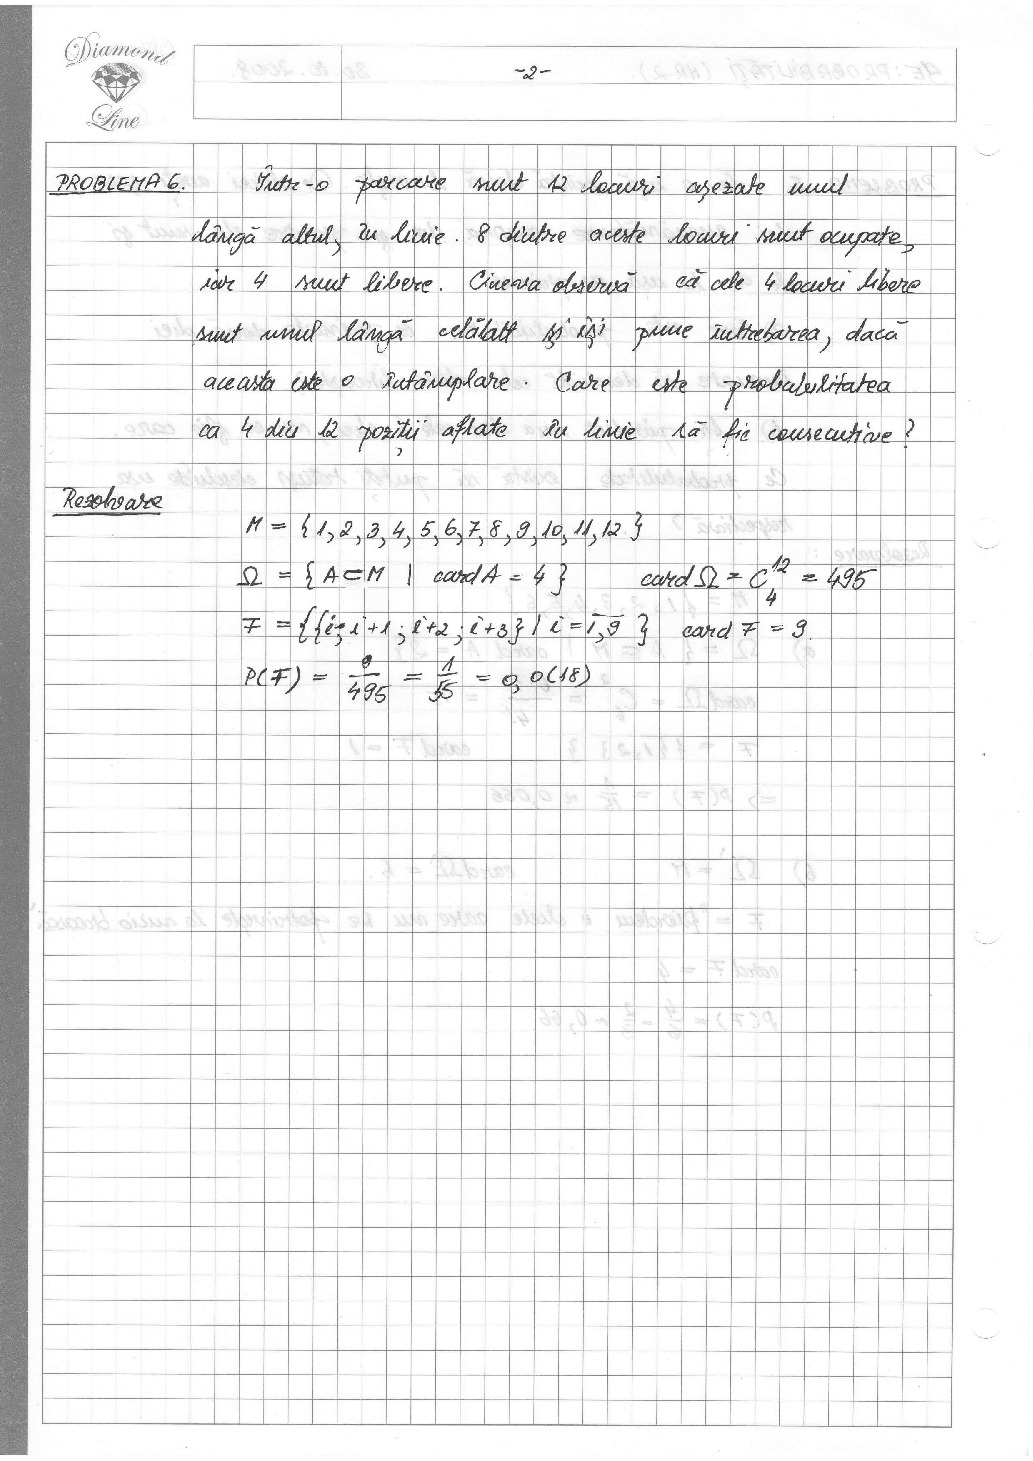 Diamond
Line
-2-
PROBLEMA 6. Într-o parcare sunt 12 locuri așezate unul
lângă altul, în linie. 8 dintre aceste locuri sunt ocupate,
iar 4 sunt libere. Cineva observă că cele 4 locuri libere
sunt unul lângă celălalt și își pune întrebarea, dacă
aceasta este o întâmplare. Care este probabilitatea
ca 4 din 12 poziții aflate în linie să fie consecutive?
Rezolvare
M = {1,2,3,4,5,6,7,8,9,10,11,12}
Ω = {A⊂M | card A = 4} card Ω = C₄¹² = 495
F = {{i; i+1; i+2; i+3} | i = 1,9} card F = 9.
P(F) = 9/495 = 1/55 = 0,0(18)